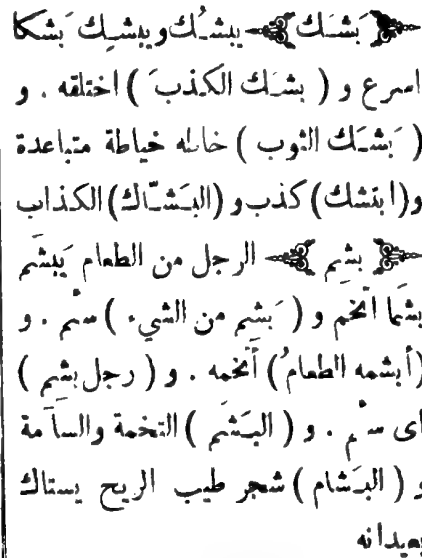 بَشَك يبشُك ويبشِك بَشكا
اسرع و ( بشَك الكذبَ ) اختلقه . و
( بَشَك الثوب ) خاطه خياطة متباعدة
و(ابتشك) كذب و (البَشّاك) الكذاب
بشِم الرجل من الطعام يَبشَم
بشَما اتخم و ( بَشِم من الشيء ) سئم . و
(أبشمه الطعامُ) أتخمه . و ( رجل بشِم )
اى سئم . و ( البَشَم ) التخمة والسآمة
و ( البَشام ) شجر طيب الريح يستاك
بعيدانه